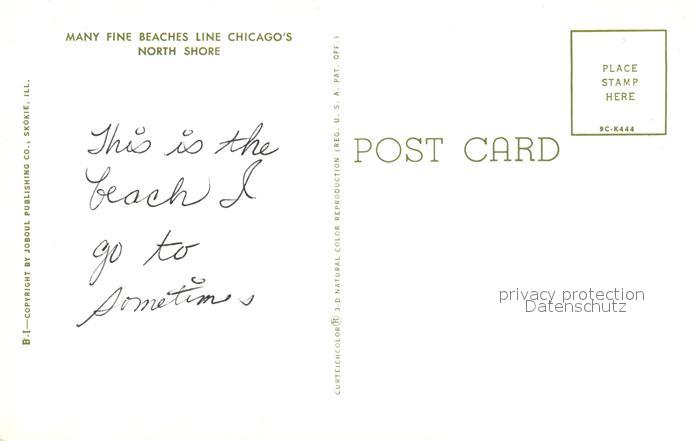 MANY FINE BEACHES LINE CHICAGO'S
NORTH SHORE
B-1—COPYRIGHT BY JOBOUL PUBLISHING CO., SKOKIE, ILL.
This is the
beach I
go to
sometimes
CURTEICHCOLOR® 3-D NATURAL COLOR REPRODUCTION (REG. U. S. A. PAT. OFF.)
POST CARD
PLACE
STAMP
HERE
9C-K444
privacy protection
Datenschutz